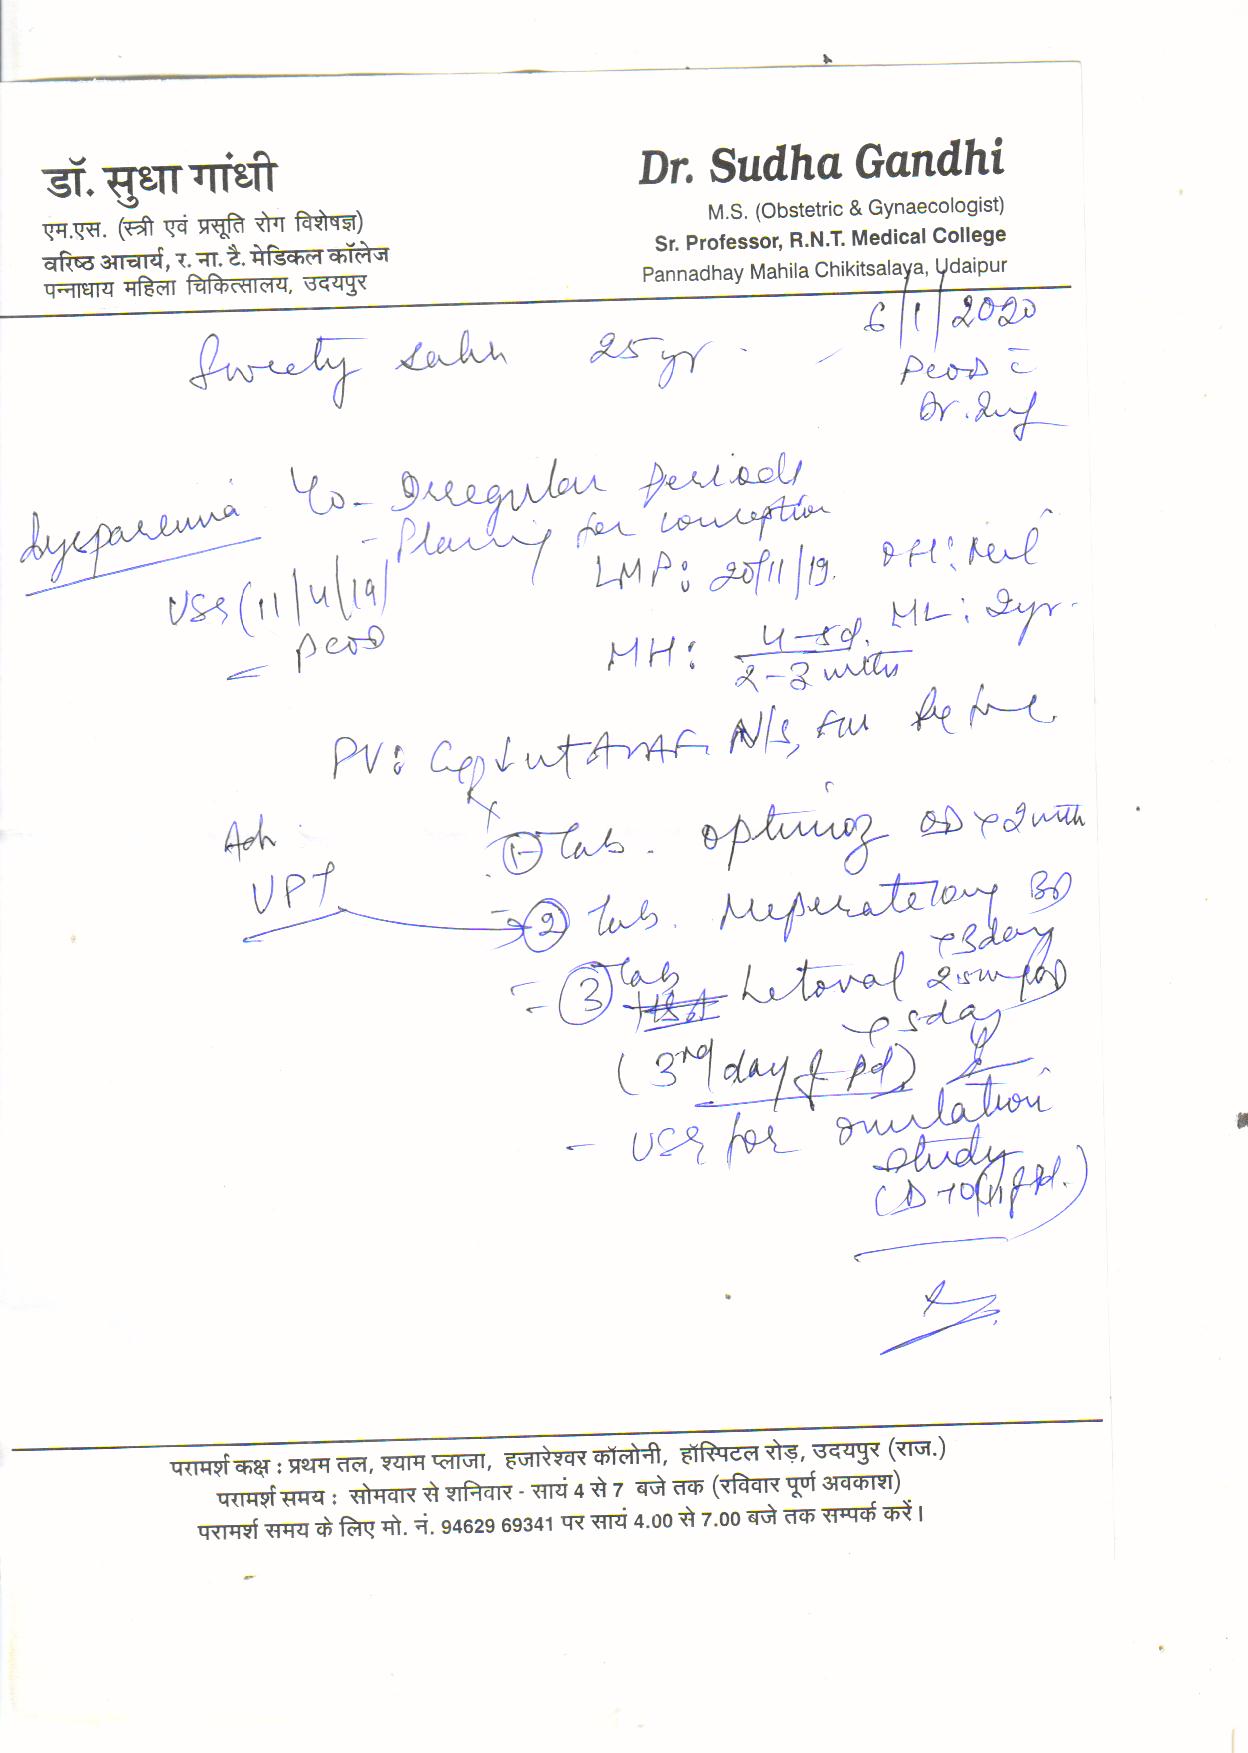 डॉ. सुधा गांधी
एम.एस. (स्त्री एवं प्रसूति रोग विशेषज्ञ)
वरिष्ठ आचार्य, र. ना. टै. मेडिकल कॉलेज
पन्नाधाय महिला चिकित्सालय, उदयपुर
Dr. Sudha Gandhi
M.S. (Obstetric & Gynaecologist)
Sr. Professor, R.N.T. Medical College
Pannadhay Mahila Chikitsalaya, Udaipur
6/1/2020
Sweety 25 yr.
PCOD c̄
- Irregular Periods
- for conception
LMP: 20/11/19.
ML: 2yr.
USG (11/4/19)
PCOD
MH: 4-5d.
2-3 mths
PV:
Adv
UPT
① Tab. OD x 2 mth
② Tab. BD
x 3 day
③ Tab Letoval
x 5 day
(3rd day of pd)
- USG for ovulation
study
परामर्श कक्ष : प्रथम तल, श्याम प्लाजा, हजारेश्वर कॉलोनी, हॉस्पिटल रोड़, उदयपुर (राज.)
परामर्श समय : सोमवार से शनिवार - सायं 4 से 7 बजे तक (रविवार पूर्ण अवकाश)
परामर्श समय के लिए मो. नं. 94629 69341 पर सायं 4.00 से 7.00 बजे तक सम्पर्क करें।